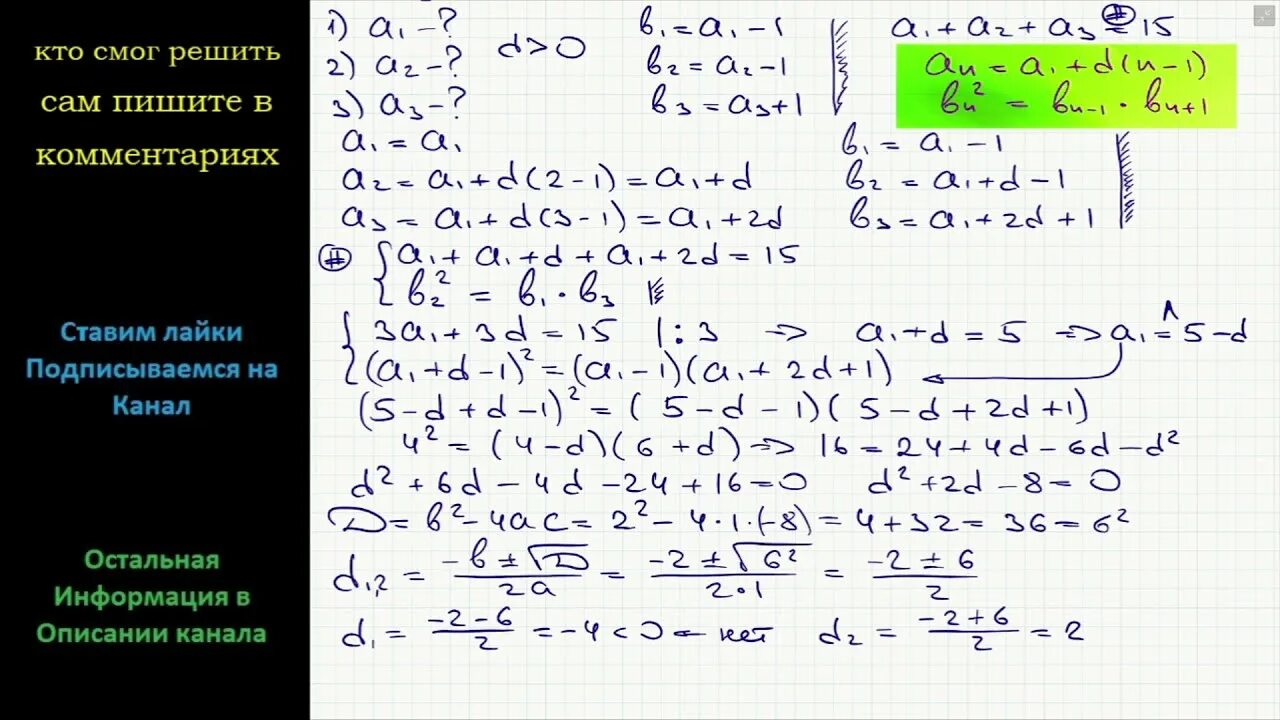 кто смог решить
сам пишите в
комментариях
Ставим лайки
Подписываемся на
Канал
Остальная
Информация в
Описании канала
1) a₁ – ? d > 0 b₁ = a₁ – 1 a₁ + a₂ + a₃ = 15 (#)
2) a₂ – ? b₂ = a₂ – 1 aₙ = a₁ + d(n – 1)
3) a₃ – ? b₃ = a₃ + 1 bₙ² = bₙ₋₁ · bₙ₊₁
a₁ = a₁ b₁ = a₁ – 1
a₂ = a₁ + d(2 – 1) = a₁ + d b₂ = a₁ + d – 1
a₃ = a₁ + d(3 – 1) = a₁ + 2d b₃ = a₁ + 2d + 1
(#) { a₁ + a₁ + d + a₁ + 2d = 15
b₂² = b₁ · b₃
{ 3a₁ + 3d = 15 |: 3 => a₁ + d = 5 => a₁ = 5 – d
(a₁ + d – 1)² = (a₁ – 1)(a₁ + 2d + 1) ←
(5 – d + d – 1)² = (5 – d – 1)(5 – d + 2d + 1)
4² = (4 – d)(6 + d) => 16 = 24 + 4d – 6d – d²
d² + 6d – 4d – 24 + 16 = 0 d² + 2d – 8 = 0
D = b² – 4ac = 2² – 4 · 1 · (–8) = 4 + 32 = 36 = 6²
d₁,₂ = (–b ± √D)/2a = (–2 ± √6²)/2·1 = (–2 ± 6)/2
d₁ = (–2 – 6)/2 = –4 < 0 ← нет d₂ = (–2 + 6)/2 = 2